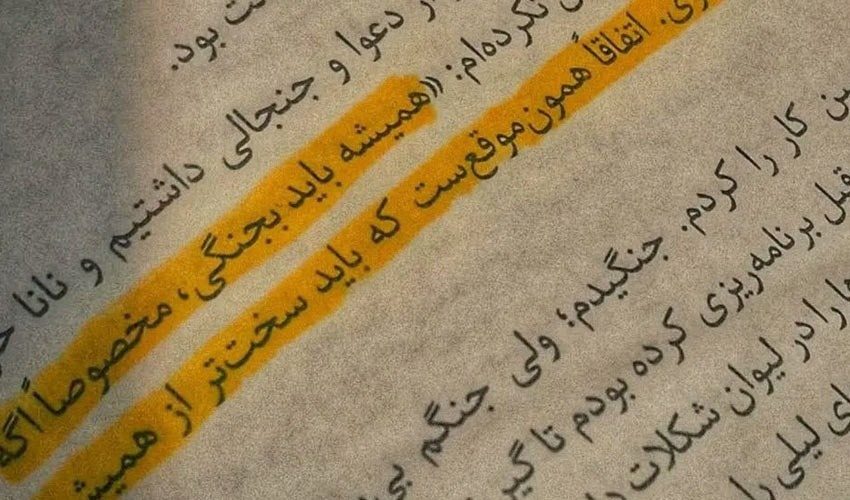 بود.
دعوا و جنجالی داشتیم و نانا
نکرده‌ام: «همیشه باید بجنگی، مخصوصاً اگه
اتفاقاً همون موقع‌ست که باید سخت‌تر از همیش
کار را کردم. جنگیدم؛ ولی جنگم
قبل برنامه‌ریزی کرده بودم تا
را در لیوان شکلات
لیلی